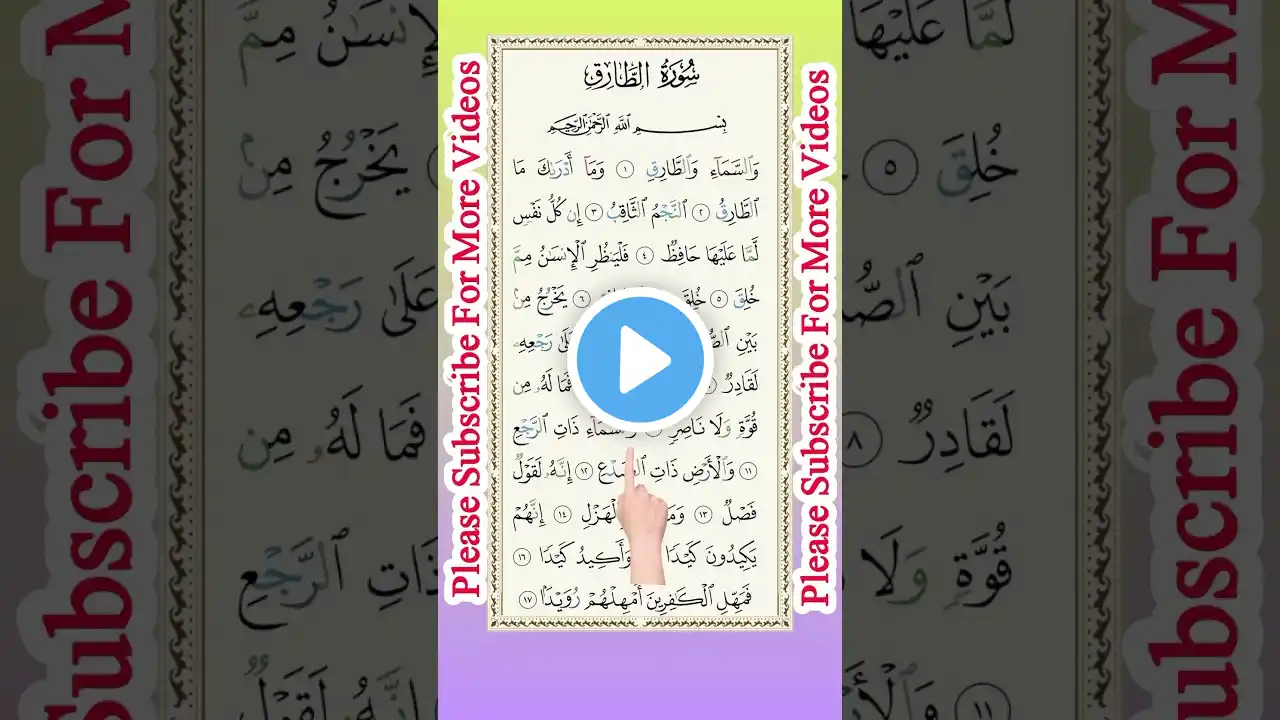 Please Subscribe For More Videos
سُورَةُ الطَّارِقِ
بِسْمِ اللَّهِ الرَّحْمَٰنِ الرَّحِيمِ
وَٱلسَّمَآءِ وَٱلطَّارِقِ ١ وَمَآ أَدْرَىٰكَ مَا
ٱلطَّارِقُ ٢ ٱلنَّجْمُ ٱلثَّاقِبُ ٣ إِن كُلُّ نَفْسٍ
لَّمَّا عَلَيْهَا حَافِظٌ ٤ فَلْيَنظُرِ ٱلْإِنسَـٰنُ مِمَّ
خُلِقَ ٥ خُلِقَ ٦ يَخْرُجُ مِنۢ
بَيْنِ عَلَىٰ رَجْعِهِۦ
لَقَادِرٌ فَمَا لَهُۥ مِن
قُوَّةٍ وَلَا نَاصِرٍ وَٱلسَّمَآءِ ذَاتِ ٱلرَّجْعِ
١١ وَٱلْأَرْضِ ذَاتِ ٱلصَّدْعِ ١٢ إِنَّهُۥ لَقَوْلٌ
فَصْلٌ ١٣ بِٱلْهَزْلِ ١٤ إِنَّهُمْ
يَكِيدُونَ كَيْدًا وَأَكِيدُ كَيْدًا ١٦
فَمَهِّلِ ٱلْكَـٰفِرِينَ أَمْهِلْهُمْ رُوَيْدًۢا ١٧
Please Subscribe For More Videos